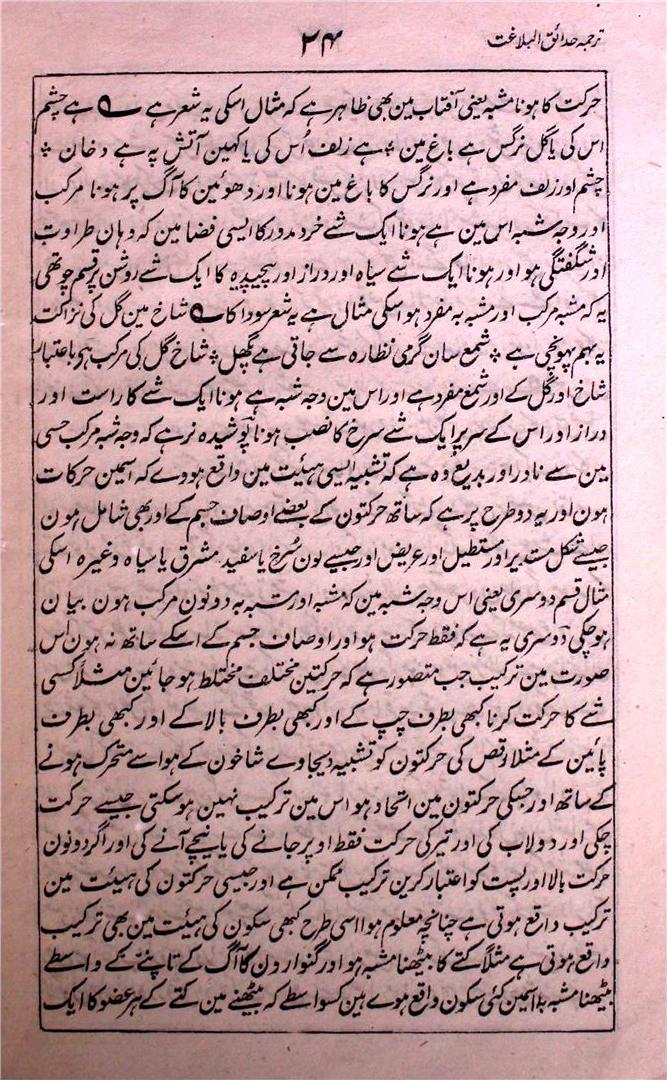 ترجمہ حدائق البلاغت
۲۴
حرکت کا ہونا مشبہ یعنی آفتاب مین بھی ظاہر ہے کہ مثال اسکی یہ شعر ہے ؎ ہے چشم
اس کی یا گل نرگس ہے باغ مین ٭ ہے زلف اُس کی یا کہین آتش پہ ہے دخان ٭
چشم اور زلف مفرد ہے اور نرگس کا باغ مین ہونا اور دھوئین کا آگ پر ہونا مرکب
اور وجہ شبہ اس مین ہے ہونا ایک شے خرد مدور کا ایسی فضا مین کہ وہان طراوت
اور شگفتگی ہو اور ہونا ایک شے سیاہ اور دراز اور پیچیدہ کا ایک شے روشن پر قسم چوتھی
یہ کہ مشبہ مرکب اور مشبہ بہ مفرد ہو اسکی مثال ہے یہ شعر سودا کا ؎ شاخ مین گل کی نزاکت
یہ بہم پہونچی ہے ٭ شمع سان گرمی نظارہ سے جاتی ہے پگھل ٭ شاخ گل کی مرکب ہی باعتبار
شاخ اور گل کے اور شمع مفرد ہے اور اس مین وجہ شبہ ہے ہونا ایک شے کا راست اور
دراز اور اس کے سر پر ایک شے سرخ کا نصب ہونا پوشیدہ نرہے کہ وجہ شبہ مرکب حسی
مین سے نادر اور بدیع وہ ہے کہ تشبیہ ایسی ہیئت مین واقع ہووے کہ اسمین حرکات
ہون اور یہ دو طرح پر ہے کہ ساتھ حرکتون کے بعضے اوصاف جسم کے اور بھی شامل ہون
جیسے شکل مستدیر اور مستطیل اور عریض اور جیسے لون سرخ یا سفید مشرق یا سیاہ وغیرہ اسکی
مثال قسم دوسری یعنی اس وجہ شبہ مین کہ مشبہ اور مشبہ بہ دونون مرکب ہون بیان
ہو چکی دوسری یہ ہے کہ فقط حرکت ہو اور اوصاف جسم کے اسکے ساتھ نہ ہون اس
صورت مین ترکیب جب متصور ہے کہ حرکتین مختلف مختلط ہو جائین مثلاً کسی
شے کا حرکت کرنا کبھی بطرف چپ کے اور کبھی بطرف بالا کے اور کبھی بطرف
پائین کے مثلا رقص کی حرکتون کو تشبیہ دیجاوے شاخون کے ہوا سے متحرک ہونے
کے ساتھ اور جسکی حرکتون مین اتحاد ہو اس مین ترکیب نہین ہو سکتی جیسے حرکت
چکی اور دولاب کی اور تیر کی حرکت فقط اوپر جانے کی یا نیچے آنے کی اور اگر دونون
حرکت بالا اور پست کو اعتبار کرین ترکیب ممکن ہے اور جیسی حرکتون کی ہیئت مین
ترکیب واقع ہوتی ہے چنانچہ معلوم ہوا اسی طرح کبھی سکون کی ہیئت مین بھی ترکیب
واقع ہوتی ہے مثلاً کتے کا بیٹھنا مشبہ ہو اور گنوارون کا آگ کے تاپنے کے واسطے
بیٹھنا مشبہ بہ اسمین کئی سکون واقع ہوے ہین کسواسطے کہ بیٹھنے مین کتے کے ہر عضو کا ایک